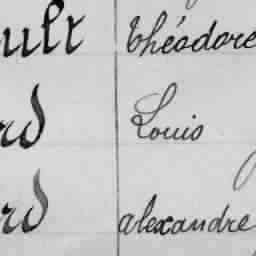 ult Théodore
rd Louis
rd alexandre